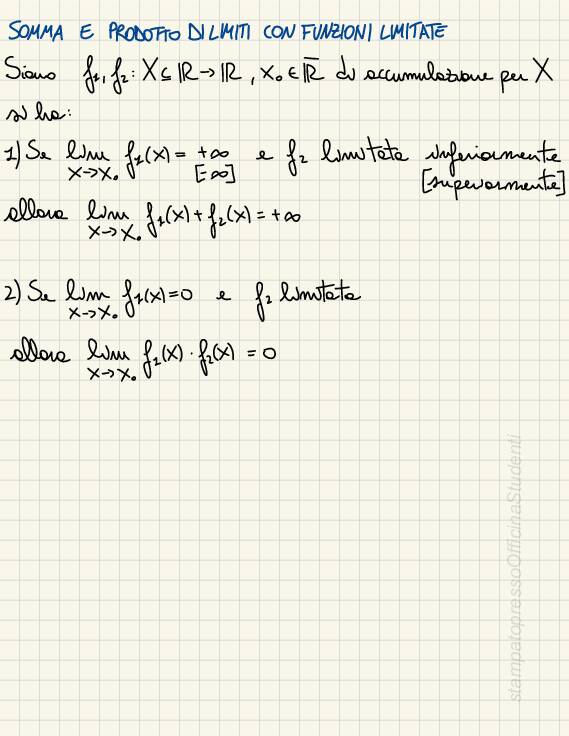 SOMMA E PRODOTTO DI LIMITI CON FUNZIONI LIMITATE
Siano f₁, f₂: X ⊆ ℝ → ℝ, x₀ ∈ ℝ̅ di accumulazione per X
si ha:
1) Se lim f₁(x) = +∞ e f₂ limitata inferiormente
x→x₀ [-∞] [superiormente]
allora lim f₁(x) + f₂(x) = +∞
x→x₀
2) Se lim f₁(x) = 0 e f₂ limitata
x→x₀
allora lim f₁(x) · f₂(x) = 0
x→x₀
stampatopressoOfficinaStudenti